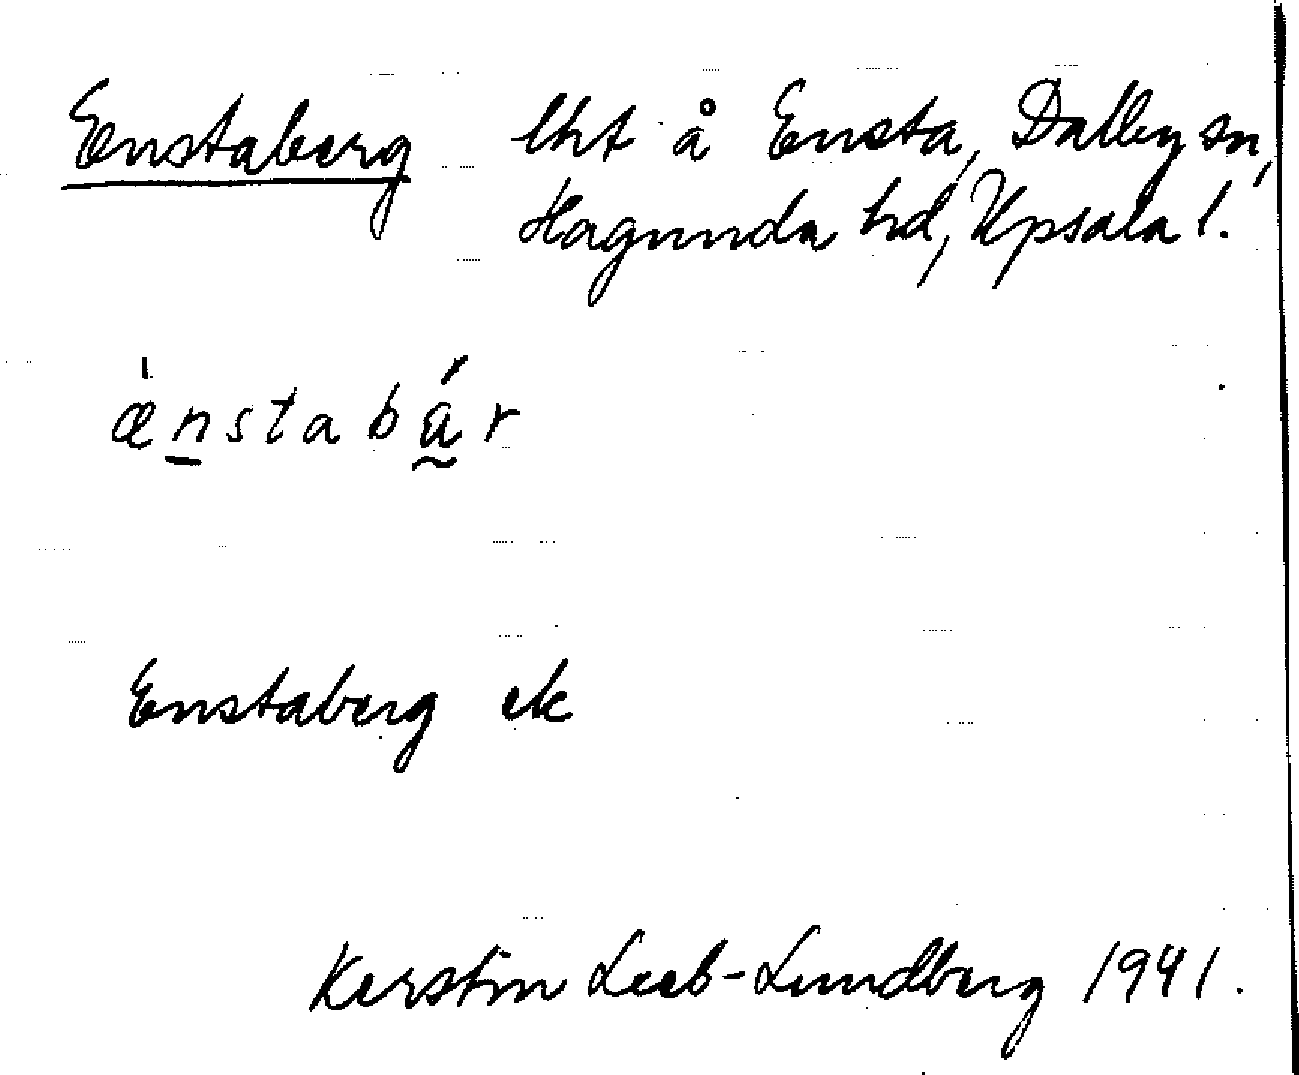 Enstaberg lht å Ensta, Dalby sn,
Hagunda hd, Upsala l.
ænstabár
Enstaberg ek
Kerstin Leeb-Lundberg 1941.